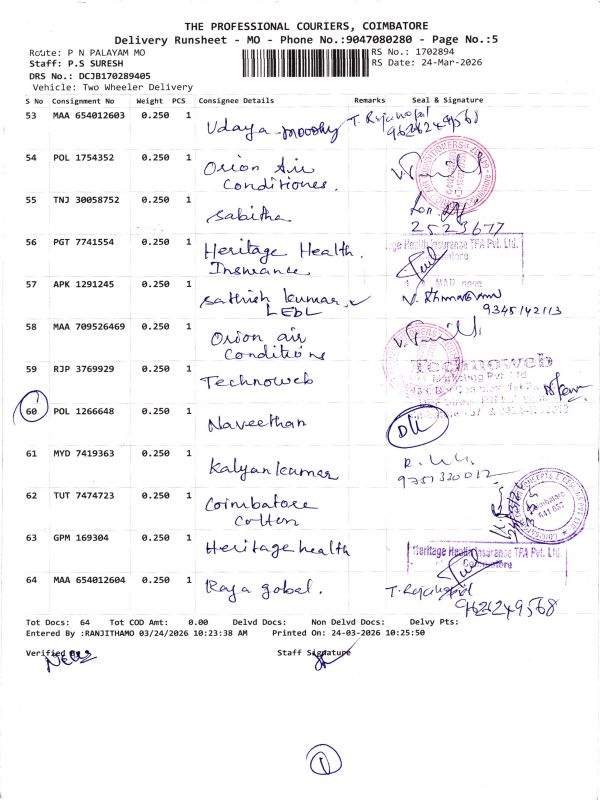 THE PROFESSIONAL COURIERS, COIMBATORE
Delivery Runsheet - MO - Phone No.:9047080280 - Page No.:5
Route: P N PALAYAM MO
RS No.: 1702894
Staff: P.S SURESH
RS Date: 24-Mar-2026
DRS No.: DCJB170289405
Vehicle: Two Wheeler Delivery
S No Consignment No Weight PCS Consignee Details Remarks Seal & Signature
53 MAA 654012603 0.250 1 Udaya moorthy T. Rajagopal
9626249568
54 POL 1754352 0.250 1 Orion Air
Conditiones.
55 TNJ 30058752 0.250 1 Sabitha
2523677
56 PGT 7741554 0.250 1 Heritage Health.
Insurance
age Health Insurance TPA Pvt. Ltd.
57 APK 1291245 0.250 1 Sathish kumar
LEBL
9345142113
58 MAA 709526469 0.250 1 Orion air
Conditions
59 RJP 3769929 0.250 1 Technoweb
Technoweb
60 POL 1266648 0.250 1 Naveethan
61 MYD 7419363 0.250 1 Kalyan kumar
9751330012
62 TUT 7474723 0.250 1 Coimbatore
Cotton
Coimbatore
63 GPM 169304 0.250 1 Heritage health
Heritage Health Insurance TPA Pvt. Ltd.
Coimbatore
64 MAA 654012604 0.250 1 Raja gobal. T. Rajagopal
9626249568
Tot Docs: 64 Tot COD Amt: 0.00 Delvd Docs: Non Delvd Docs: Delvy Pts:
Entered By :RANJITHAMO 03/24/2026 10:23:38 AM Printed On: 24-03-2026 10:25:50
Verified By
Staff Signature
1